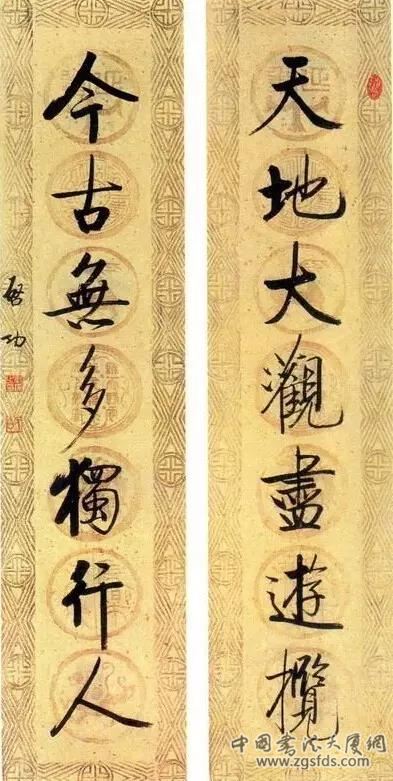 天地大觀盡遊攬
今古無多獨行人
啓功
中國書法大廈網
www.zgsfds.com